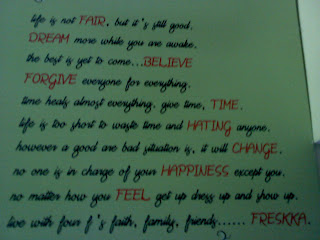 life is not FAIR, but it's still good.
DREAM more while you are awake.
the best is yet to come...BELIEVE
FORGIVE everyone for everything.
time heals almost everything. give time, TIME.
life is too short to waste time and HATING anyone.
however a good are bad situation is, it will CHANGE.
no one is in charge of your HAPPINESS except you.
no matter how you FEEL get up dress up and show up.
live with four f's faith, family, friends...... FRESKKA.